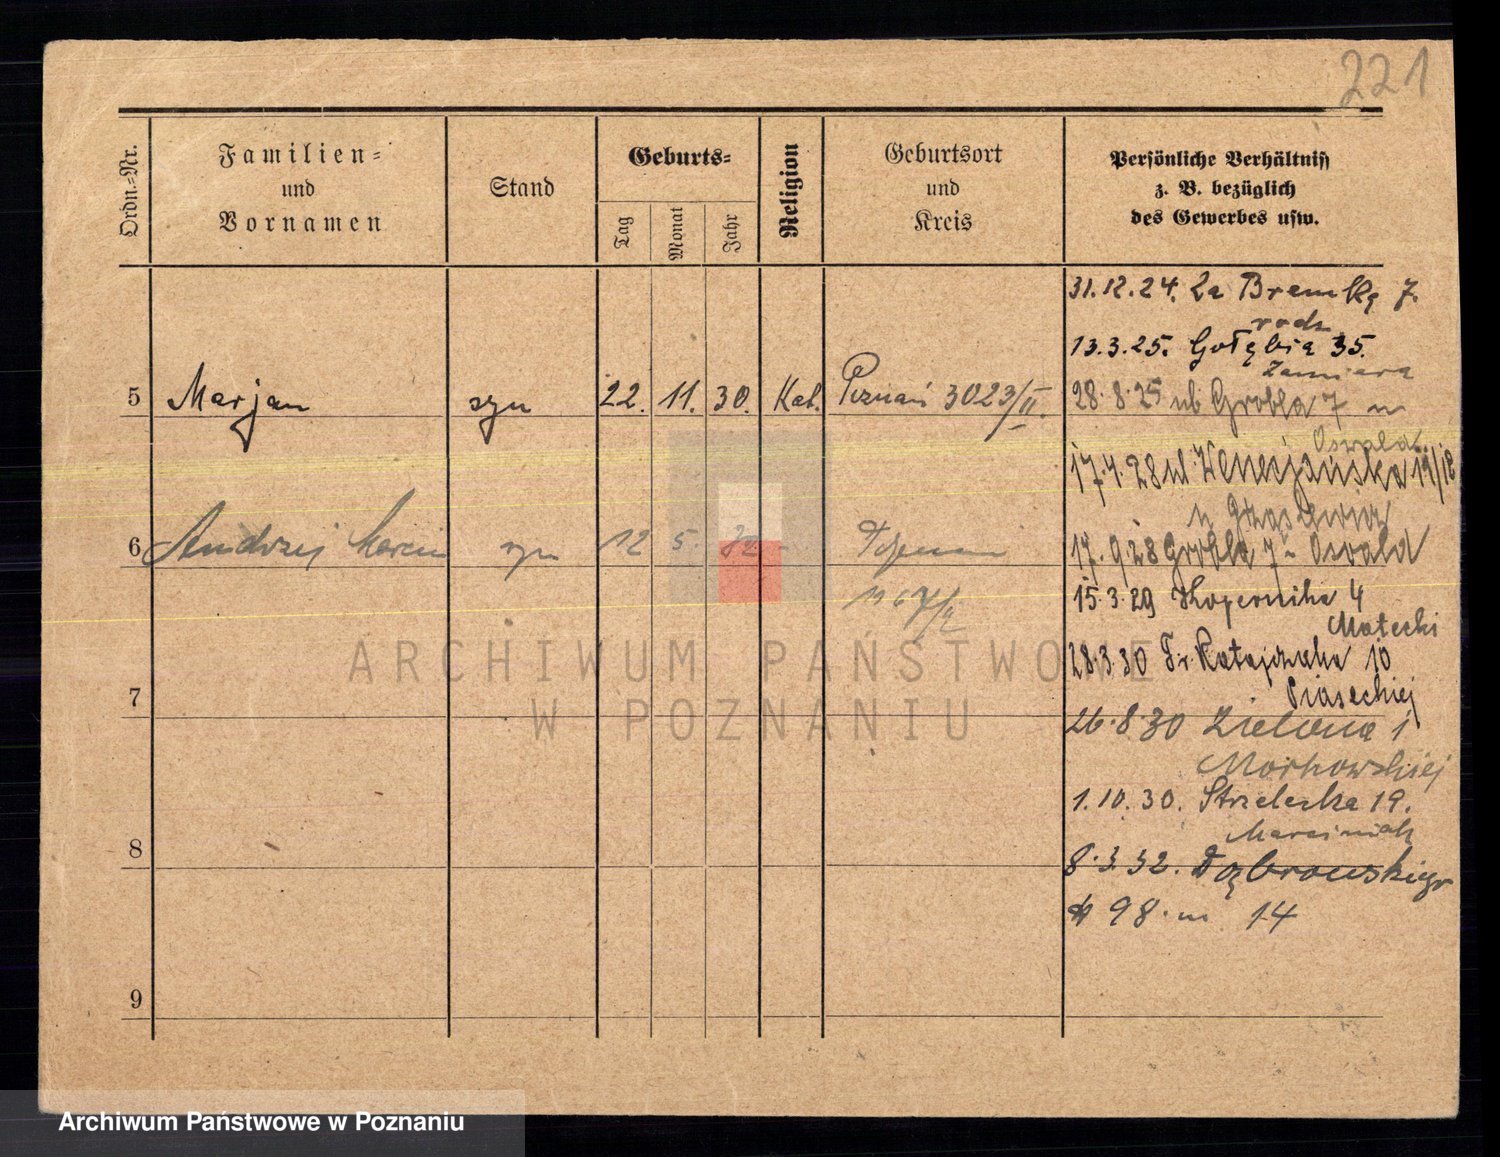 221
Ordn.-Nr.
Familien-
und
Vornamen
Stand
Geburts-
Tag
Monat
Jahr
Religion
Geburtsort
und
Kreis
Persönliche Verhältniss
z. B. bezüglich
des Gewerbes usw.
31.12.24. Za Bramką 7.
rodz.
13.3.25. Gołębia 35.
5 Marjan syn 22. 11. 30. Kat. Poznań 3023/II.
28.8.25 ul Grobla 7 m
Oswald
17.4.28 ul. Wenecjańska 19/18
6 Andrzej Marcin syn 12 5. 32 -
17.9.28 Grobla 7 - Oswald
15.3.29 Kopernika 4
Matecki
28.3.30 Fr. Ratajczaka 10
Piaseckiej
7
26.8.30 Zielona 1
1.10.30. Strzelecka 19.
Marciniak
8
8.3.32. Dąbrowskiego
98. m 14
9
ARCHIWUM PAŃSTWOWE
W POZNANIU
Archiwum Państwowe w Poznaniu